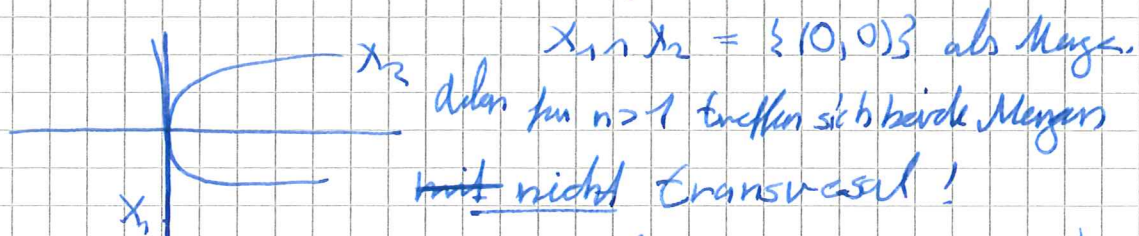 X₁ ∩ X₂ = {(0,0)} als Menge.
X₂
aber für n>1 treffen sich beide Mengen
mit nicht transversal !
X₁